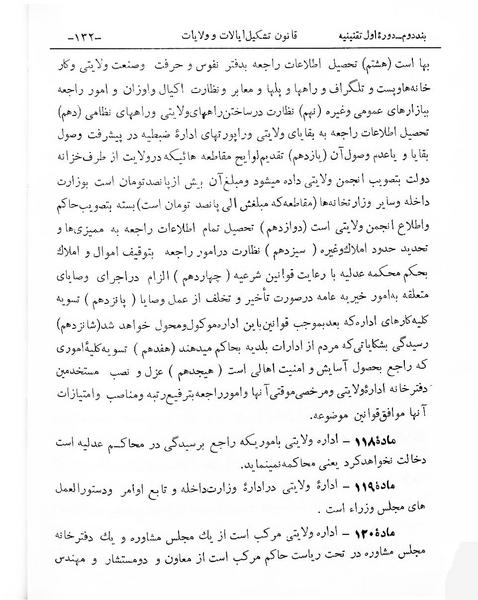 بنددوم_دورهٔ اول تقنینیه قانون تشکیل ایالات و ولایات -۱۳۲-
بها است (هشتم) تحصیل اطلاعات راجعه بدفتر نفوس و حرفت و صنعت ولایتی و کار
خانه‌ها و پست و تلگراف و راهها و پلها و معابر و نظارت اکیال و اوزان و امور راجعه
ببازارهای عمومی و غیره (نهم) نظارت در ساختن راههای ولایتی و راههای نظامی (دهم)
تحصیل اطلاعات راجعه به بقایای ولایتی و راپورتهای ادارهٔ ضبطیه در پیشرفت وصول
بقایا و یاعدم وصول آن (یازدهم) تقدیم لوایح مقاطعه هائیکه در ولایت از طرف خزانه
دولت بتصویب انجمن ولایتی داده میشود و مبلغ آن بیش از پانصد تومان است بوزارت
داخله و سایر وزارتخانه‌ها (مقاطعه که مبلغش الی پانصد تومان است) بسته بتصویب حاکم
و اطلاع انجمن ولایتی است (دوازدهم) تحصیل تمام اطلاعات راجعه به ممیزی‌ها و
تحدید حدود املاک و غیره (سیزدهم) نظارت در امور راجعه بتوقیف اموال و املاک
بحکم محکمه عدلیه با رعایت قوانین شرعیه (چهاردهم) الزام در اجرای وصایای
متعلقه به امور خیریه عامه در صورت تأخیر و تخلف از عمل وصایا (پانزدهم) تسویه
کلیه کارهای اداره که بعد بموجب قوانین باین اداره موکول و محول خواهد شد (شانزدهم)
رسیدگی بشکایاتی که مردم از ادارات بلدیه بحاکم میدهند (هفدهم) تسویه کلیهٔ اموری
که راجع بحصول آسایش و امنیت اهالی است (هیجدهم) عزل و نصب مستخدمین
دفترخانه ادارهٔ ولایتی و مرخصی موقتی آنها و امور راجعه بترفیع رتبه و مناصب و امتیازات
آنها موافق قوانین موضوعه.
مادهٔ ۱۱۸ - اداره ولایتی باموریکه راجع برسیدگی در محاکم عدلیه است
دخالت نخواهد کرد یعنی محاکمه نمینماید.
مادهٔ ۱۱۹ - ادارهٔ ولایتی در ادارهٔ وزارت داخله و تابع اوامر و دستورالعمل
های مجلس وزراء است .
مادهٔ ۱۲۰ - اداره ولایتی مرکب است از یك مجلس مشاوره و یك دفترخانه
مجلس مشاوره در تحت ریاست حاکم مرکب است از معاون و دو مستشار و مهندس